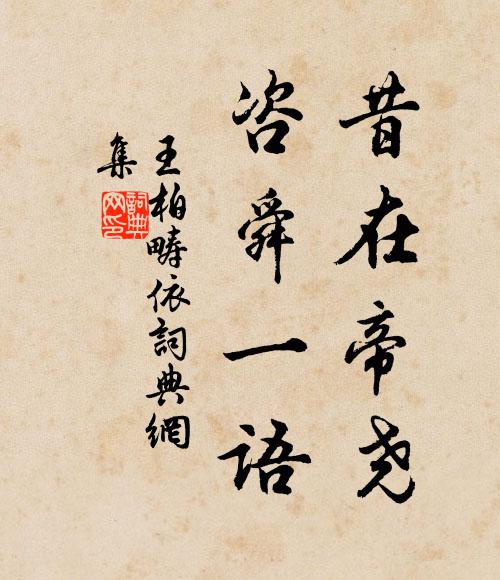 昔在帝尧
咨舜一语
王柏畴依詞典網
集
詞典
网印